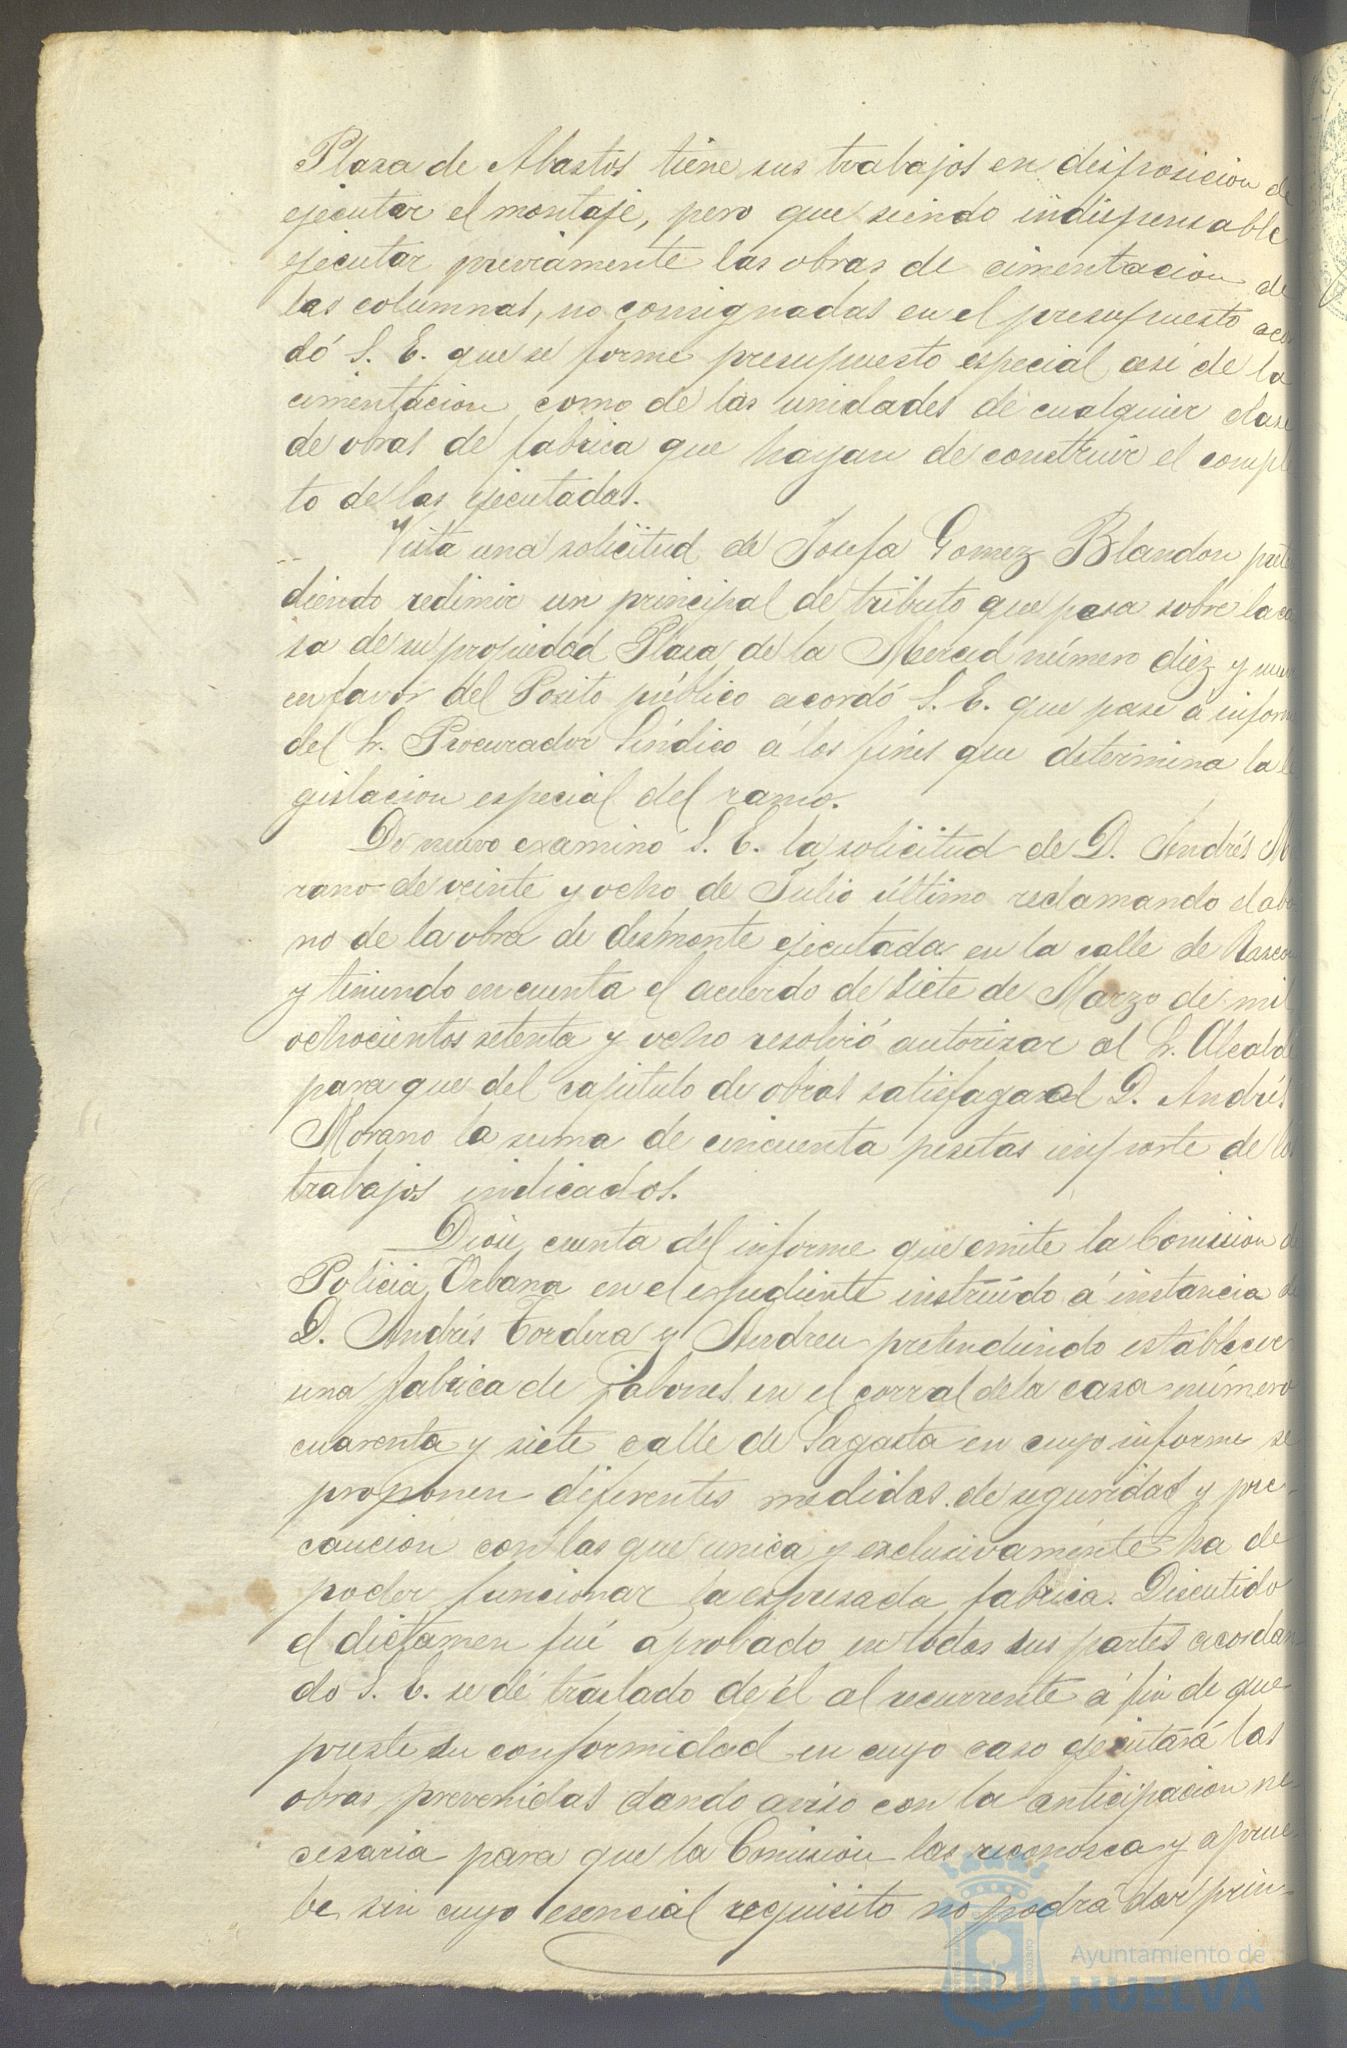 Plaza de Abastos tiene sus trabajos en disposicion de
ejecutar el montaje, pero que siendo indispensable
ejecutar previamente las obras de cimentacion de
las columnas, no consignadas en el presupuesto acor
dó S. E. que se forme presupuesto especial así de la
cimentacion como de las unidades de cualquier clase
de obras de fabrica que hayan de construir el comple
to de las ejecutadas.
Vista una solicitud de Josefa Gomez Blandon preten
diendo redimir un principal de tributo que pesa sobre la ca
sa de su propiedad Plaza de la Merced número diez y
en favor del Posito público acordó S. E. que pase á informe
del Sr. Procurador Síndico á los fines que determina la le
gislacion especial del ramo.
De nuevo examinó S. E. la solicitud de D. Andrés Mo
rano de veinte y ocho de Julio último reclamando el abo
no de la obra de desmonte ejecutada en la calle de Rascon
y teniendo en cuenta el acuerdo de siete de Marzo de mil
ochocientos setenta y ocho resolvió autorizar al Sr. Alcalde
para que del capitulo de obras satisfaga al D. Andrés
Morano la suma de cincuenta pesetas importe de los
trabajos indicados.
Dióse cuenta del informe que emite la Comision de
Policia Urbana en el expediente instruído á instancia de
D. Andrés Tordera y Andreu pretendiendo establecer
una fabrica de jabones en el corral de la casa número
cuarenta y siete calle de Sagasta en cuyo informe se
proponen diferentes medidas de seguridad y pre-
caucion con las que unica y exclusivamente ha de
poder funcionar la expresada fabrica. Discutido
el dictamen fué aprobado en todas sus partes acordan
do S. E. se dé traslado de él al recurrente á fin de que
preste su conformidad en cuyo caso ejecutará las
obras prevenidas dando aviso con la anticipacion ne-
cesaria para que la Comision las reconozca y aprue-
be sin cuyo esencial requisito no podrá dar prin-
Ayuntamiento de
HUELVA